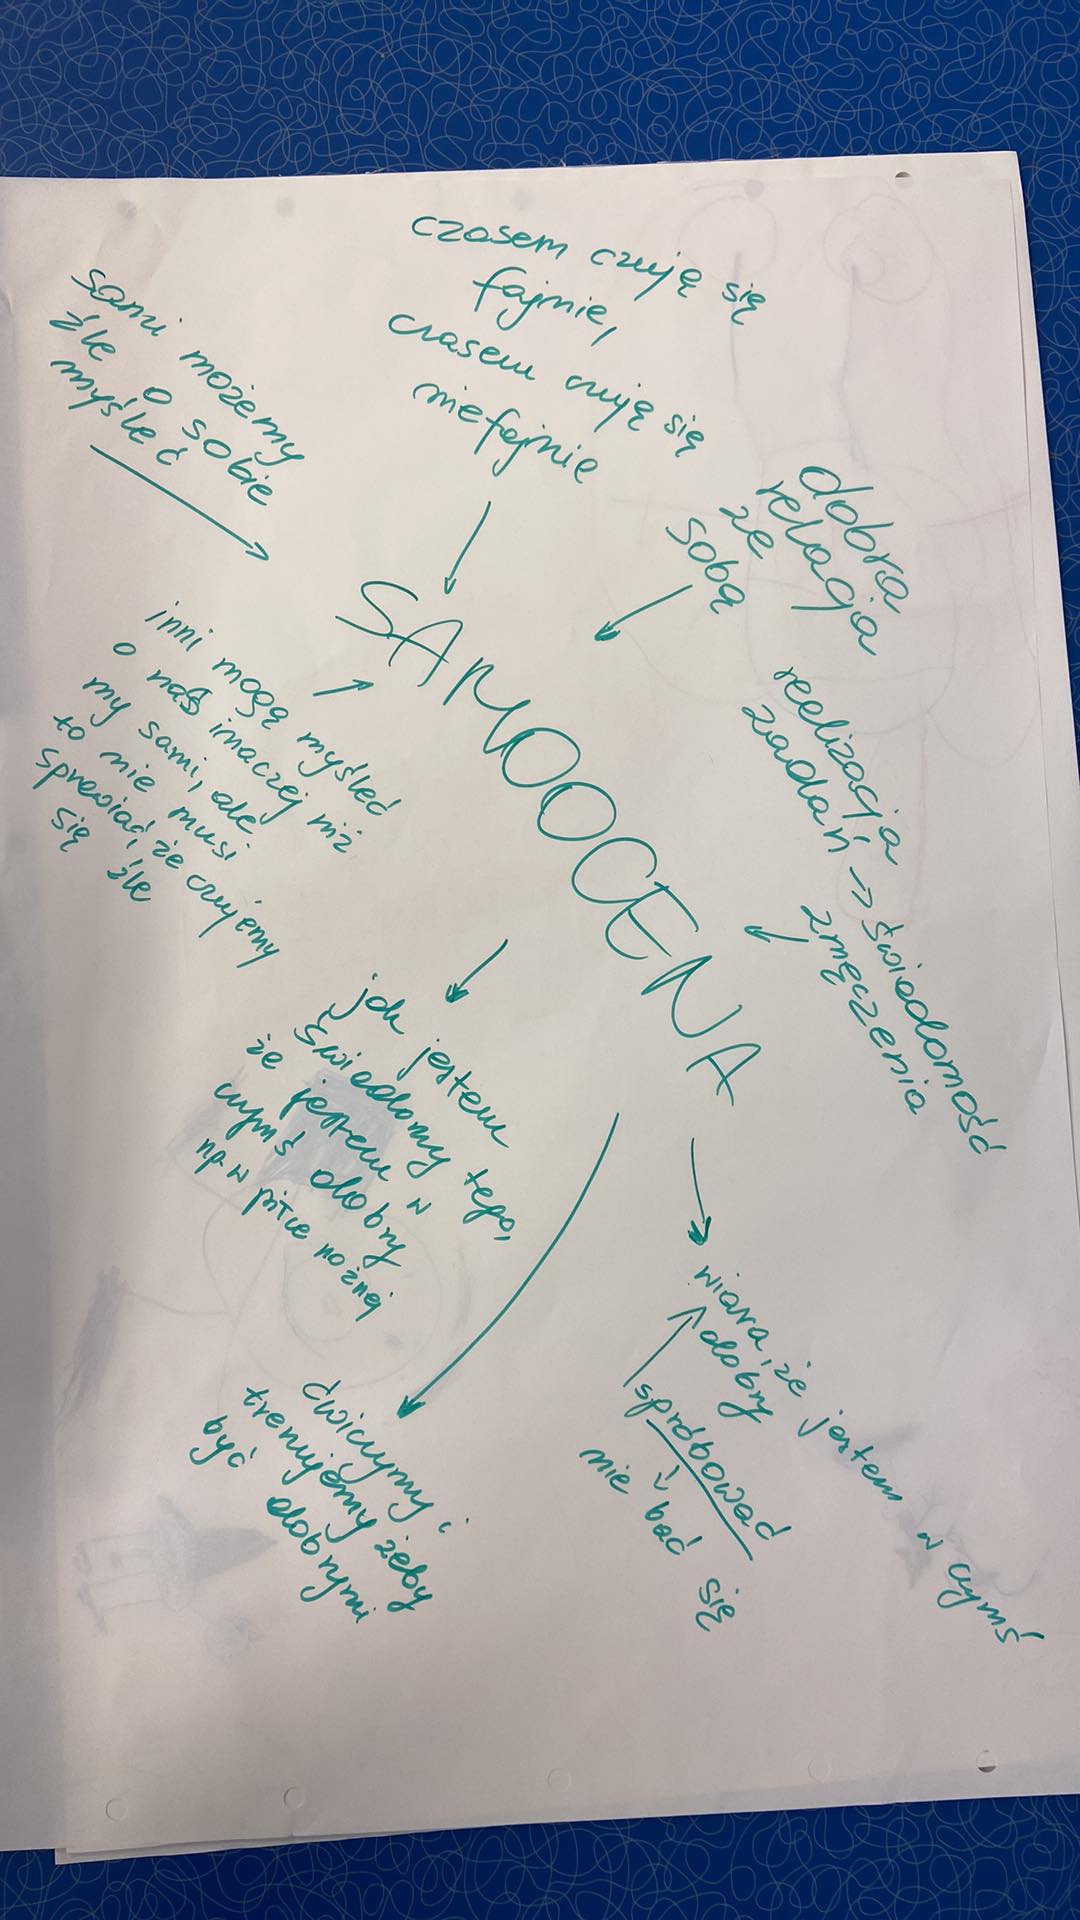 czasem czują się
fajnie,
czasem czują się
niefajnie
sami możemy
źle o sobie
myśleć
dobra
relacja
ze
sobą
SAMOOCENA
inni mogą myśleć
o nas inaczej niż
my sami, ale
to nie musi
sprawiać, że czujemy
się źle
realizacja
zadań → świadomość
zmęczenia
jak jestem
świadomy tego,
że jestem w
czymś dobry
np w piłce nożnej
wiara, że jestem w czymś
dobry
spróbować
↓
nie bać się
ćwiczymy i
trenujemy żeby
być dobrymi